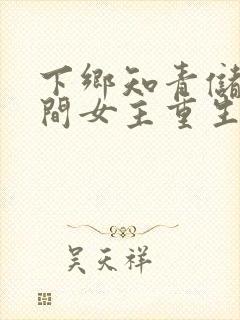 下鄉知青儲
間女主重生
吳天祥